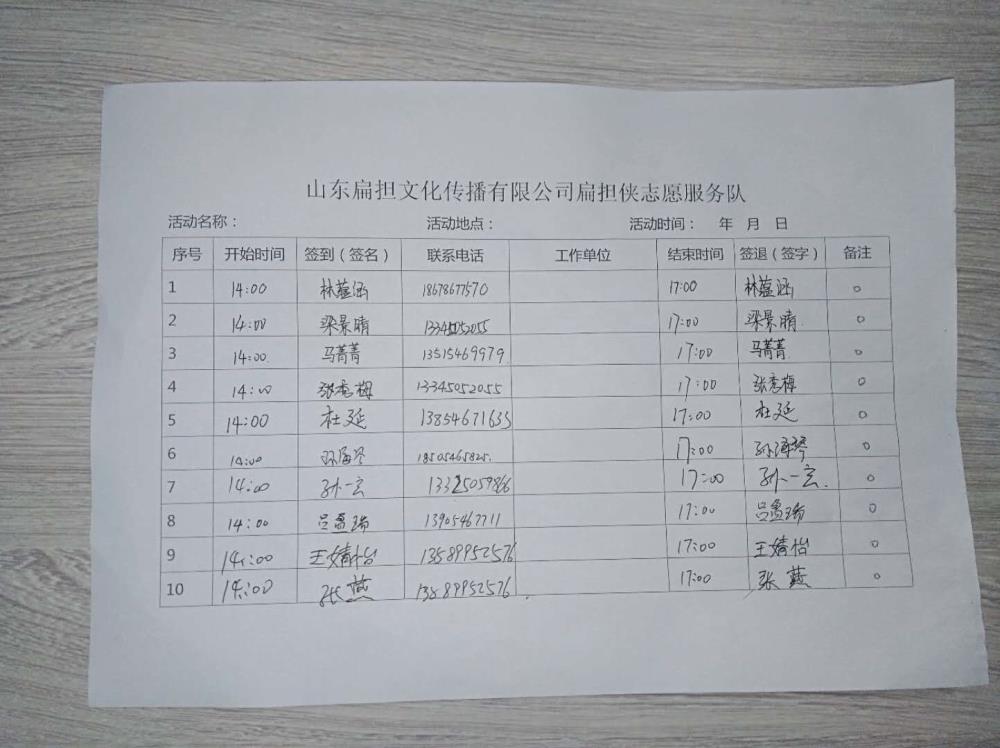 山东扁担文化传播有限公司扁担侠志愿服务队
活动名称： 活动地点： 活动时间： 年 月 日
序号 开始时间 签到（签名） 联系电话 工作单位 结束时间 签退（签字） 备注
1 14:00 林蕴涵 18678677570 17:00 林蕴涵 0
2 14:00 梁景晴 13345052055 17:00 梁景晴 0
3 14:00 马菁菁 13515469979 17:00 马菁菁 0
4 14:00 张秀梅 13345052055 17:00 张秀梅 0
5 14:00 杜延 13854671633 17:00 杜延 0
6 14:00 孙海琴 18505465825. 17:00 孙海琴 0
7 14:00 孙一玄 17:00 孙一玄. 0
8 14:00 吕鲁瑞 13905467711 17:00 吕鲁瑞 0
9 14:00 王婧怡 13589952576 17:00 王婧怡 0
10 14:00 张燕 13589952576 17:00 张燕 0